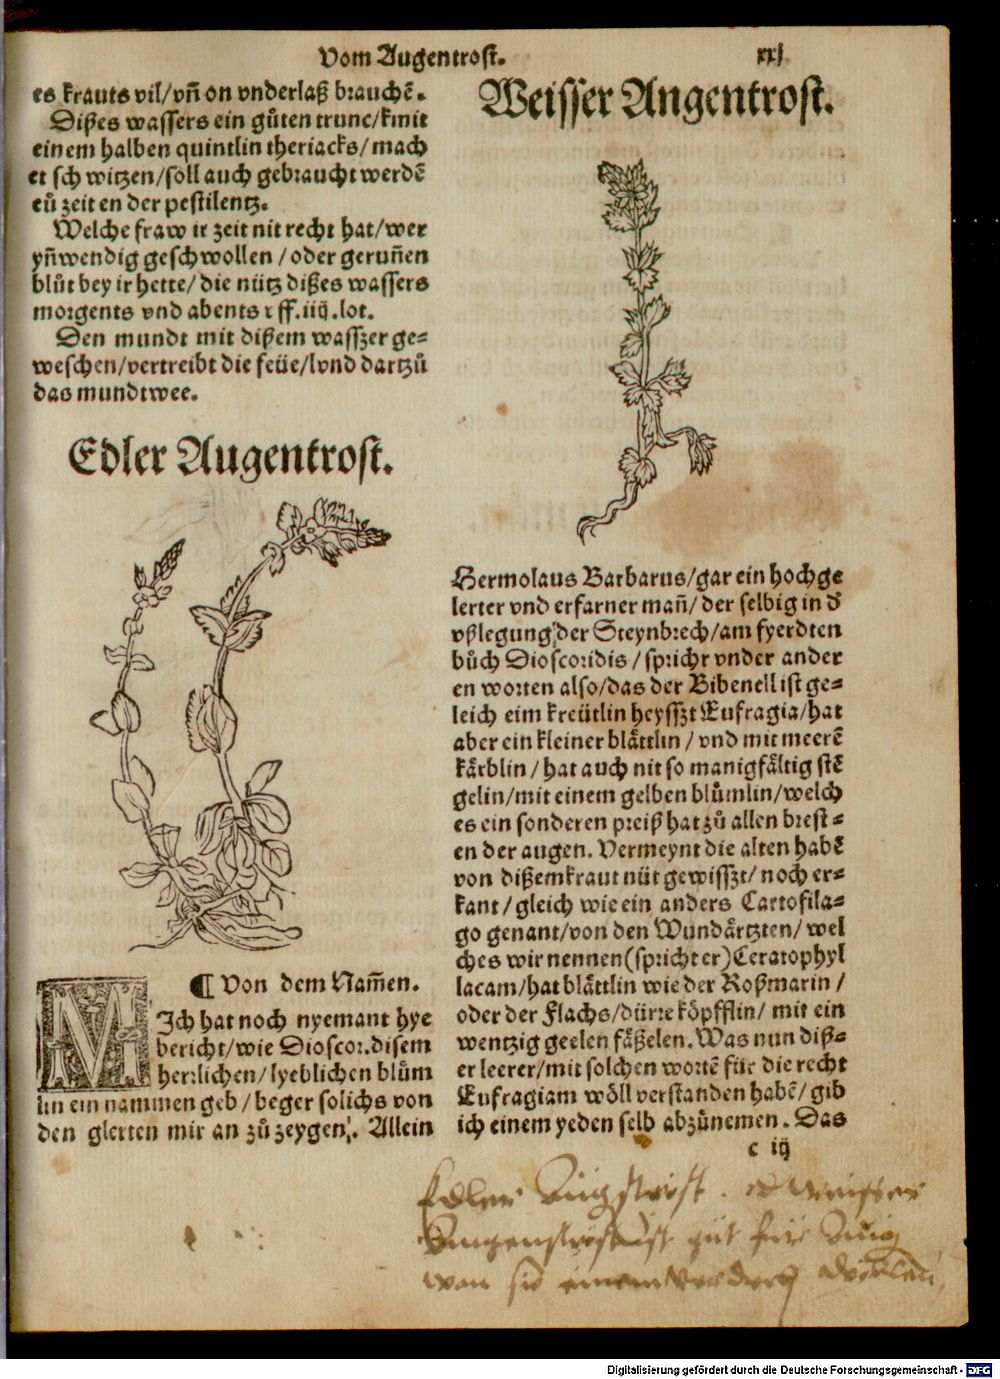 Vom Augentrost.
xxj
es krauts vil/vñ on vnderlaß brauchẽ.
Dißes wassers ein gůten trunc/kmit
einem halben quintlin theriacks/mach
et schwitzen/soll auch gebraucht werdẽ
ců zeiten der pestilentz.
Welche fraw ir zeit nit recht hat/wer
yñwendig geschwollen/oder geruñen
blůt bey ir hette/die nütz dißes wassers
morgents vnd abents ꝛff.iiij.lot.
Den mundt mit dißem wasszer ge=
weschen/vertreibt die feüe/lvnd dartzů
das mundtwee.
Edler Augentrost.
¶ Von dem Nam̃en.
MIch hat noch nyemant hye
bericht/wie Dioscor.disem
herrlichen/lyeblichen blům
lin ein nammen geb/beger solichs von
den glerten mir an zů zeygen. Allein
Weisser Angentrost.
Hermolaus Barbarus/gar ein hochge
lerter vnd erfarner mañ/der selbig in d̕
vßlegung der Steynbrech/am fyerdten
bůch Dioscoridis/spricht vnder ander
en worten also/das der Bibenell ist ge=
leich eim kreütlin heysszt Eufragia/hat
aber ein kleiner blättlin/vnd mit meerẽ
kärblin/hat auch nit so manigfältig stẽ
gelin/mit einem gelben blůmlin/welch
es ein sonderen preiß hat zů allen brest=
en der augen. Vermeynt die alten habẽ
von dißem kraut nüt gewisszt/noch er=
kant/gleich wie ein anders Cartofila=
go genant/von den Wundärtzten/wel
ches wir nennen(spricht er)Ceratophyl
lacam/hat blättlin wie der Roßmarin/
oder der Flachs/dürre köpfflin/mit ein
wentzig geelen fäßelen. Was nun diß=
er leerer/mit solchen wortẽ für die recht
Eufragiam wöll verstanden habẽ/gib
ich einem yeden selb abzůnemen. Das
c iij
Edler Augstrost
gut für
Digitalisierung gefördert durch die Deutsche Forschungsgemeinschaft - DFG